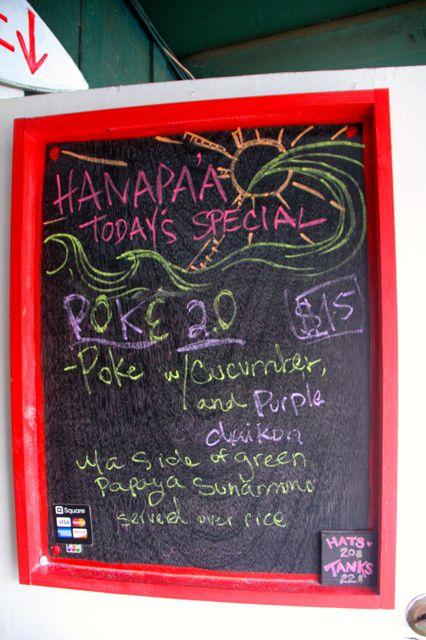 HANAPA'A
TODAY'S SPECIAL
POKE 2.0 $15
-Poke w/Cucumber,
and Purple
daikon
w/a side of green
Papaya Sunamono
served over rice
Square
VISA
HATS
20$
TANKS
22$